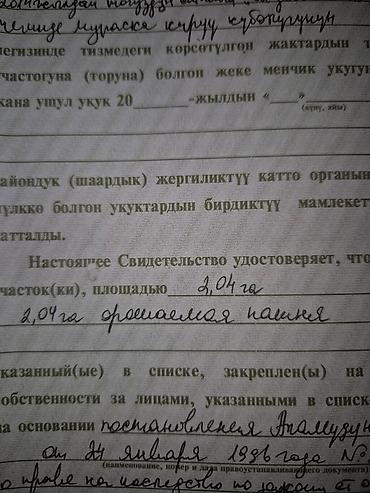 ченице мураска кируу күбөлүгүнүн
негизинде тизмедеги көрсөтүлгөн жактардын
частогуна (торуна) болгон жеке менчик укугу
кана ушул укук 20 -жылдын « »
(күнү, айы)
айондук (шаардык) жергиликтүү катто органын
үлккө болгон укуктардын бирдиктүү мамлекет
атталды.
Настоящее Свидетельство удостоверяет, что
часток(ки), площадью 2,04 га
2,04 га орошаемая пашня
казанный(ые) в списке, закреплен(ы) на
обственности за лицами, указанными в списк
на основании постановления
от 24 января 1996 года №
(наименование, номер и дата правоустанавливающего документа)
о праве на наследство по закону от